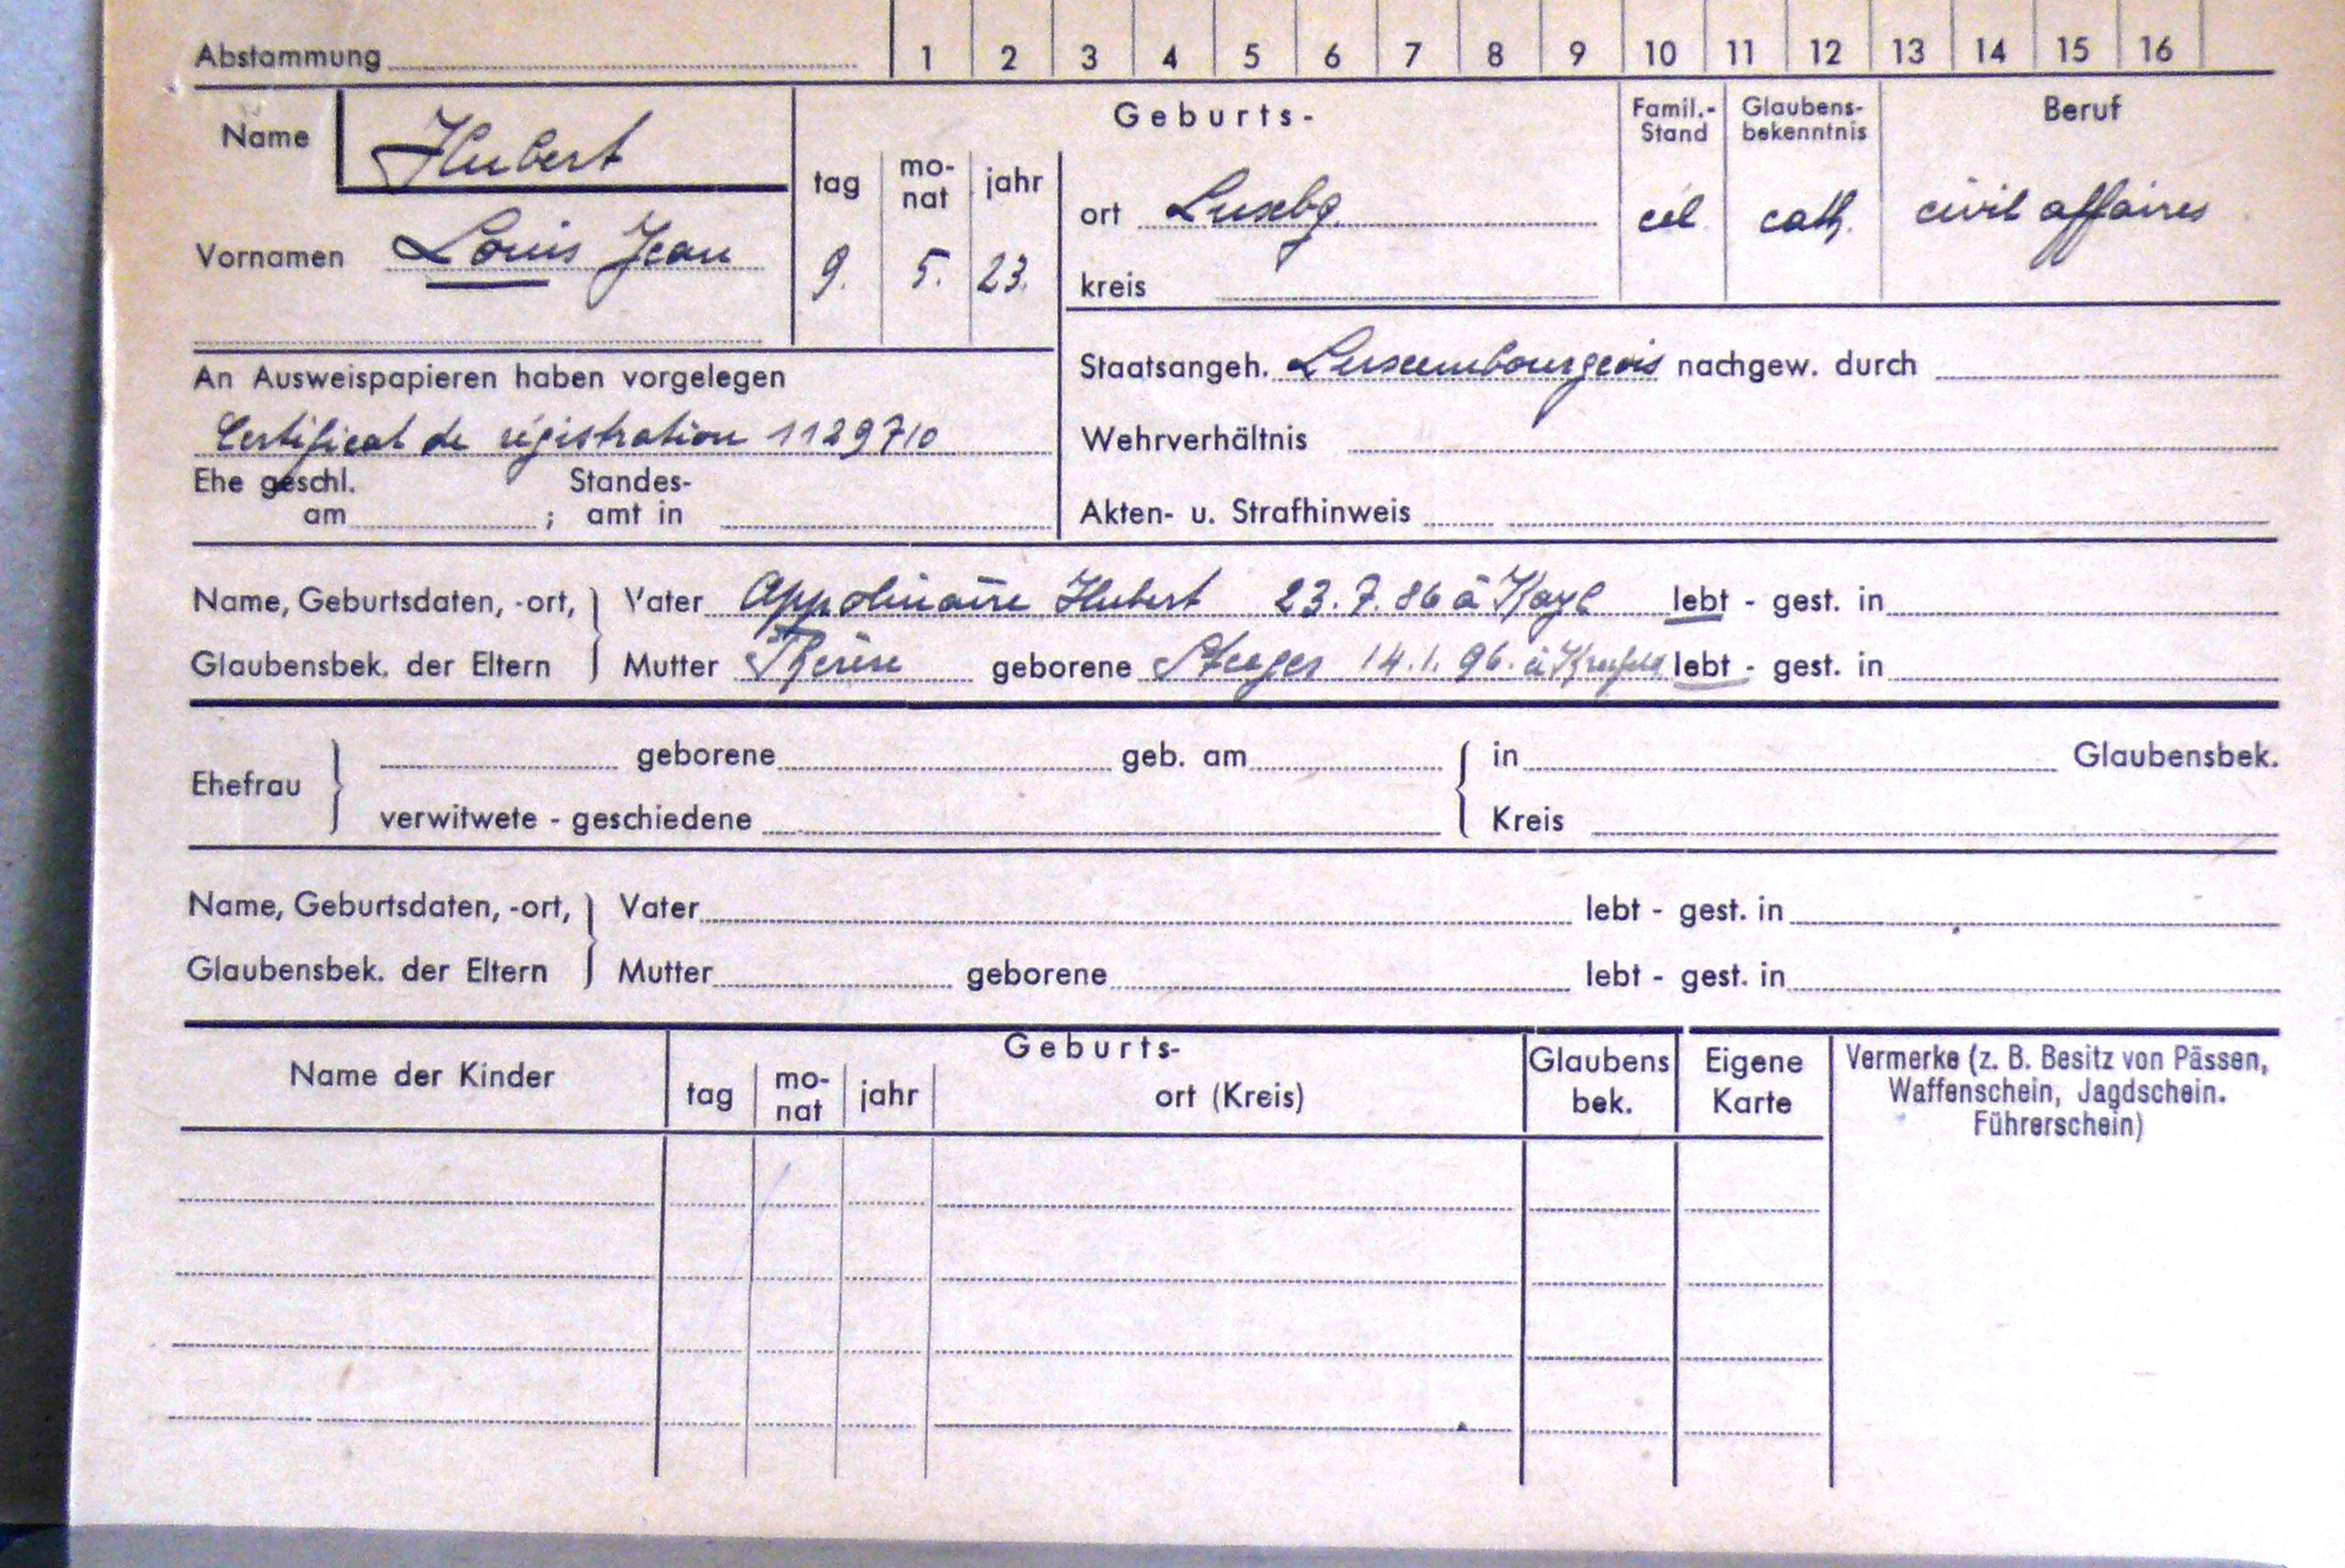 Abstammung 1 2 3 4 5 6 7 8 9 10 11 12 13 14 15 16
Name Hubert
Vornamen Louis Jean
Geburts-
tag mo-nat jahr
9. 5. 23.
ort Luxbg
kreis
Famil.-Stand
cel
Glaubens-bekenntnis
cath.
Beruf
civil affaires
An Ausweispapieren haben vorgelegen
Certificat de régistration 1129710
Ehe geschl. am ; Standes-amt in
Staatsangeh. Luxembourgeois nachgew. durch
Wehrverhältnis
Akten- u. Strafhinweis
Name, Geburtsdaten, -ort, Vater Appolinaire Hubert 23.7.86 à Kayl lebt - gest. in
Glaubensbek. der Eltern Mutter Thérèse geborene 14.1.96. à Krefeld lebt - gest. in
Ehefrau geborene geb. am in Glaubensbek.
verwitwete - geschiedene Kreis
Name, Geburtsdaten, -ort, Vater lebt - gest. in
Glaubensbek. der Eltern Mutter geborene lebt - gest. in
Name der Kinder
Geburts-
tag mo-nat jahr ort (Kreis)
Glaubens bek.
Eigene Karte
Vermerke (z. B. Besitz von Pässen,
Waffenschein, Jagdschein.
Führerschein)